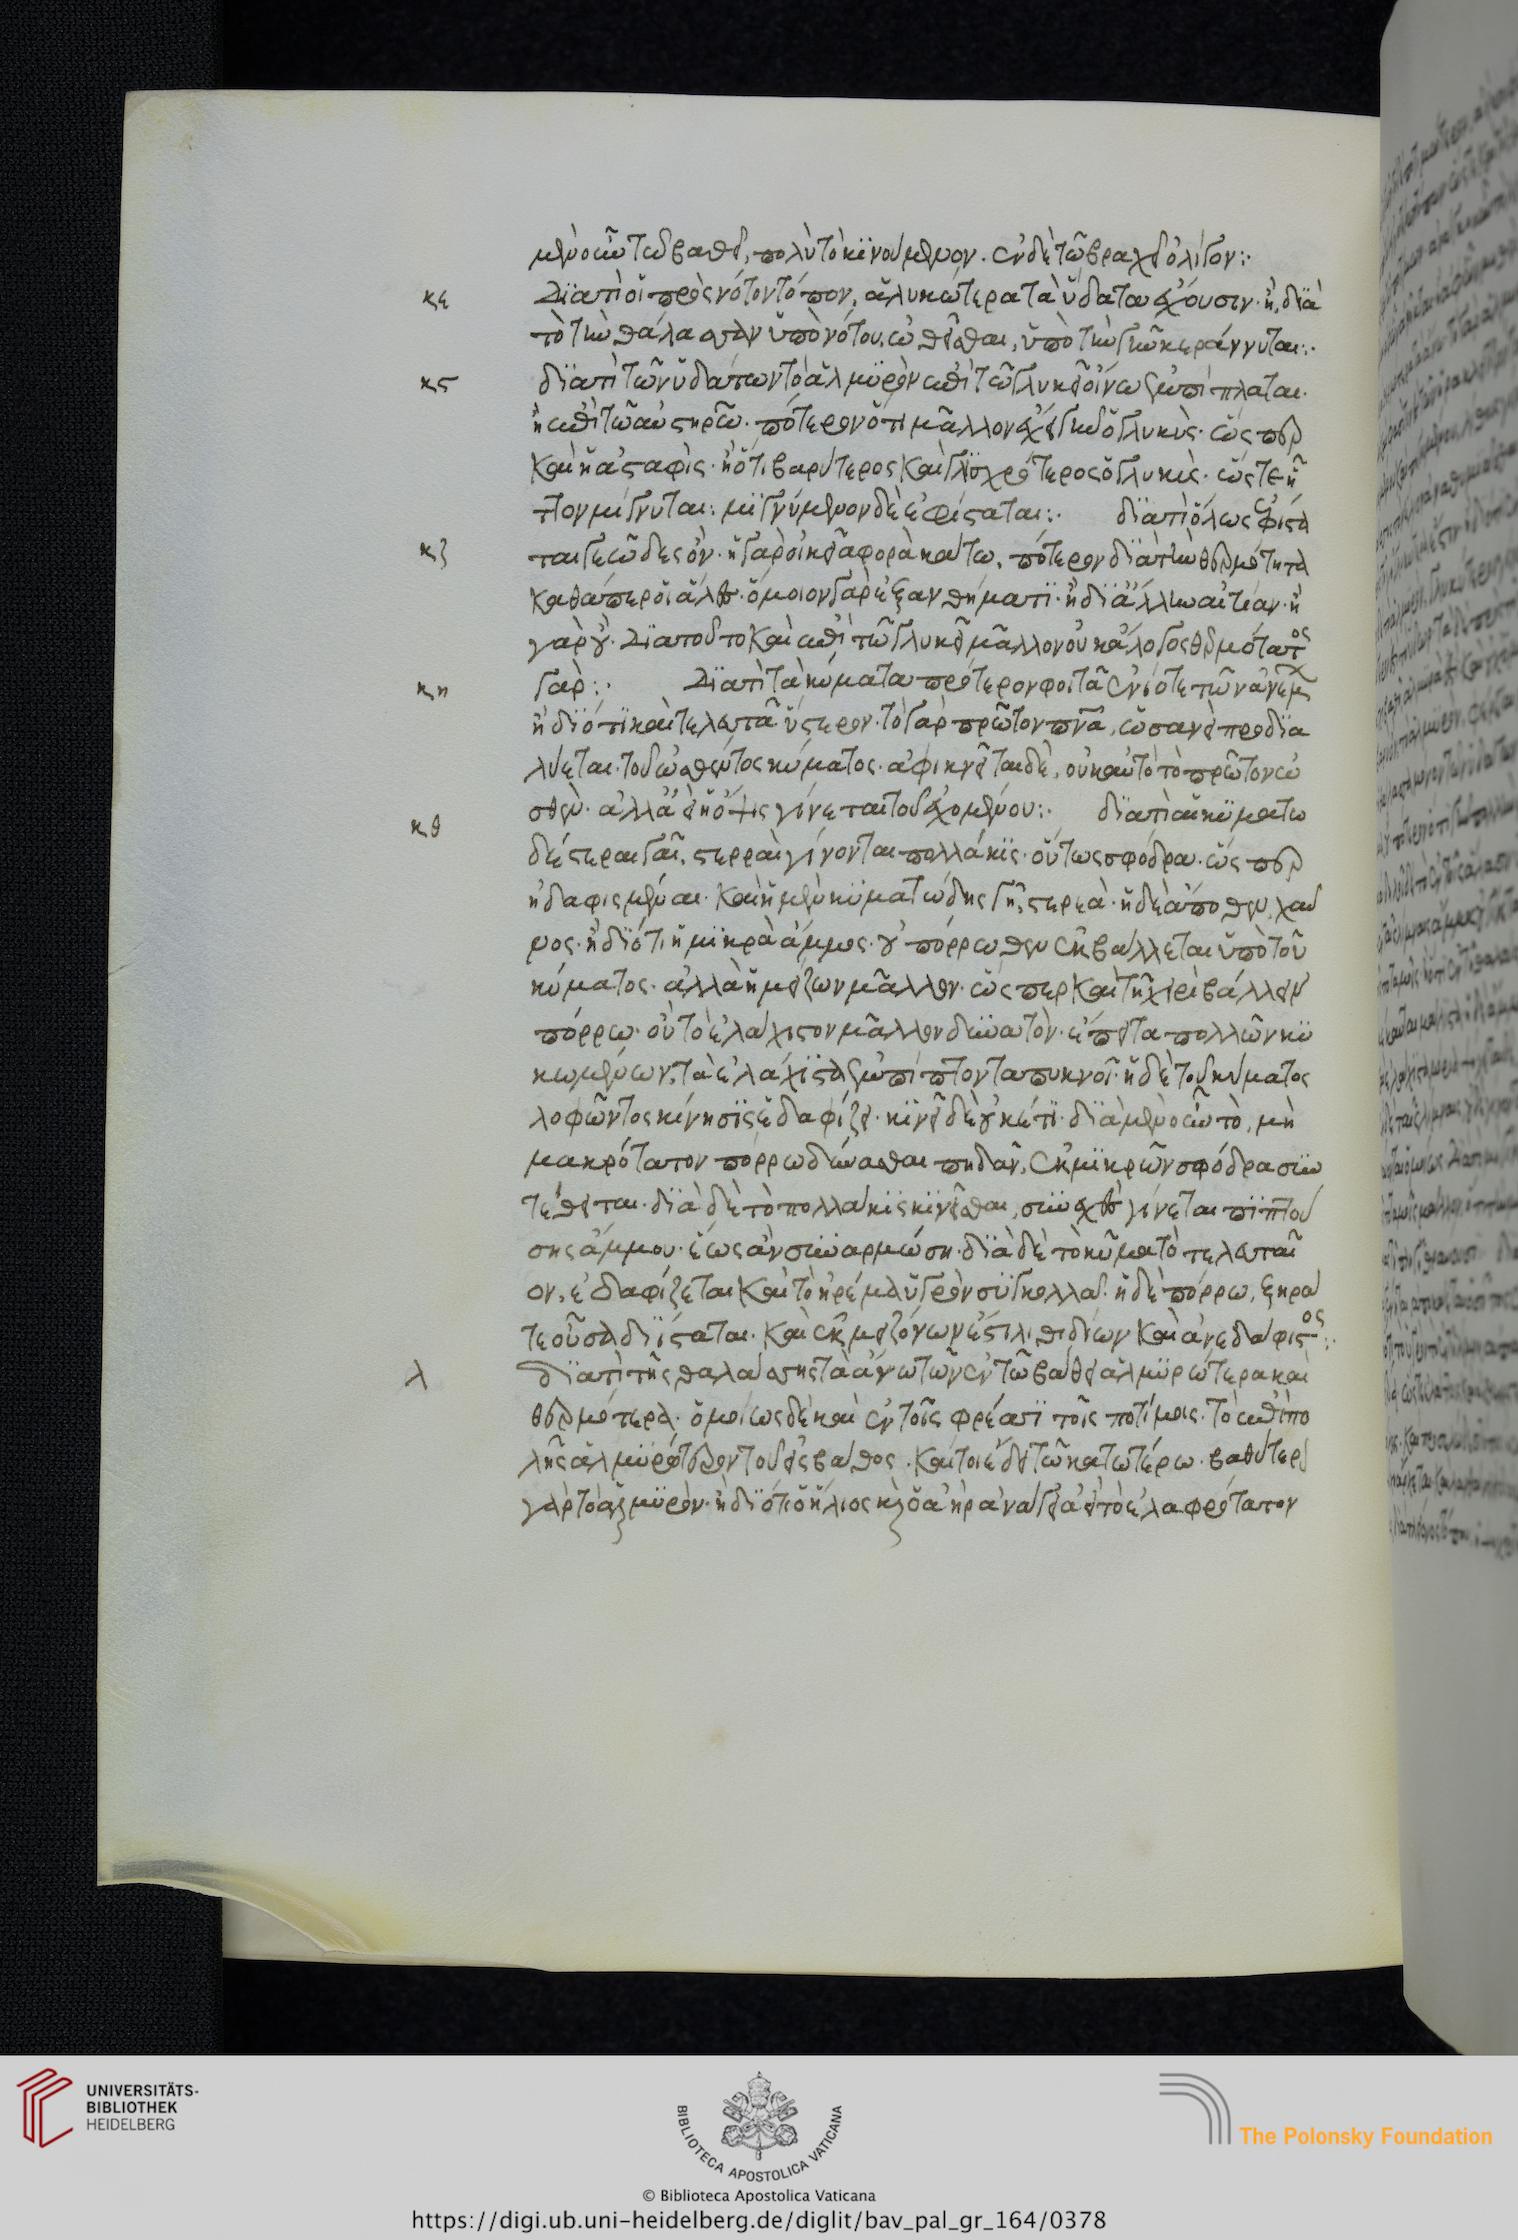 μὲν οὖν τῷ βαθεῖ, πολὺ τὸ κινούμενον. ἐν δὲ τῷ βραχεῖ ὀλίγον:·
κε Διατί οἱ πρὸς νότον τόποι, ἁλυκώτερα τὰ ὕδατα ἔχουσιν· ἢ, διὰ
τὸ τὴν θάλασσαν ὑπὸ νότου ὠθεῖσθαι, ὑπὸ τὴν γῆν κεράννυται:·
κς διατί τῶν ὑδάτων τὸ ἁλμυρὸν ἐπὶ τῷ γλυκεῖ οἴνῳ ἐπιπλαται·
ἢ ἐπὶ τῷ αὐστηρῷ· πότερον ὅτι μᾶλλον ἔχει γῆν ὁ γλυκὺς· ὥσπερ
καὶ ἡ ἀσταφίς· ἢ ὅτι βαρύτερος καὶ γλισχρότερος ὁ γλυκὺς· ὥστε ἧτ
τον μίγνυται: μιγνύμενον δὲ ἐφίσταται:· διατί ὅλως ἐφίστα
κζ ται γεῶδες ὄν· ἡ γὰρ οἰκεία φορὰ κάτω· πότερον διὰ τὴν θερμότητα
καθάπερ οἱ ἅλες· ὅμοιον γὰρ ἐξανθήματι· ἢ δι' ἄλλην αἰτίαν· ἢ
γὰρ οὐ· Διὰ τοῦτο καὶ ἐπὶ τῷ γλυκεῖ μᾶλλον οὐκ ἄλογος θερμότατος
κη γάρ:· Διατί τὰ κύματα πρότερον φοιτᾷ ἐνίοτε τῶν ἀνέμων
ἢ διότι καὶ τελευτᾷ ὕστερον· τὸ γὰρ πρῶτον πνεῦμα, ὡσανεὶ προδια
λύεται τοῦ ὠσθέντος κύματος· ἀφικνεῖται δὲ, οὐκ αὐτὸ τὸ πρῶτον ὠ
κθ σθὲν· ἀλλ' ἀεὶ ἡ ὦσις γίνεται τοῦ ἐχομένου:· διατί αἱ κυματω
δέστεραι γαῖ, στερραὶ γίνονται πολλάκις· οὕτως σφόδρα· ὥσπερ
ἠδαφισμέναι· καὶ ἡ μὲν κυματώδης γῆ, στερεὰ· ἡ δὲ ἄποθεν, χαῦ
νος· ἢ διότι ἡ μικρὰ ἄμμος· οὐ πόρρωθεν ἐκβάλλεται ὑπὸ τοῦ
κύματος· ἀλλὰ ἡ μείζων μᾶλλον· ὥσπερ καὶ τῇ χειρὶ βάλλειν
πόρρω· οὐ τὸ ἐλάχιστον μᾶλλον δυνατὸν· ἔπειτα πολλῶν κυ
κωμένων, τὰ ἐλάχιστα ἐπιπίπτοντα πυκνοῖ· ἡ δὲ τοῦ κύματος
λοφῶντος κίνησις ἐδαφίζει· κινεῖ δὲ οὐκέτι· διὰ μὲν οὖν τὸ, μὴ
μακρότατον πόρρω δύνασθαι πηδᾶν, ἐκ μικρῶν σφόδρα συν
τέθειται· διὰ δὲ τὸ πολλάκις κινεῖσθαι, συνεχὲς γίνεται πιπτού
σης ἄμμου· ἕως ἂν συναρμώσῃ· διὰ δὲ τὸ κῦμα τὸ τελευταῖ
ον, ἐδαφίζεται καὶ τὸ ἠρέμα ὑγρὸν συγκολλᾷ· ἡ δὲ πόρρω, ξηρά
τε οὖσα διίσταται· καὶ ἐκ μειζόνων ἐστὶ λιθιδίων καὶ ἀνεδάφιστος:·
λ διατί τῆς θαλάσσης τὰ ἄνω τῶν ἐν τῷ βάθει ἁλμυρώτερα καὶ
θερμότερα· ὁμοίως δὲ καὶ ἐν τοῖς φρέασι τοῖς ποτίμοις· τὸ ἐπιπο
λῆς ἁλμυρότερον τοῦ εἰς βάθος· καίτοι ἔδει τῶν κατωτέρω· βαθύτερον
γὰρ τὸ ἁλμυρὸν· ἢ διότι ὁ ἥλιος καὶ ὁ ἀὴρ ἀνάγει ἀεὶ τὸ ἐλαφρότατον
UNIVERSITÄTS-
BIBLIOTHEK
HEIDELBERG
BIBLIOTECA APOSTOLICA VATICANA
The Polonsky Foundation
© Biblioteca Apostolica Vaticana
https://digi.ub.uni-heidelberg.de/diglit/bav_pal_gr_164/0378